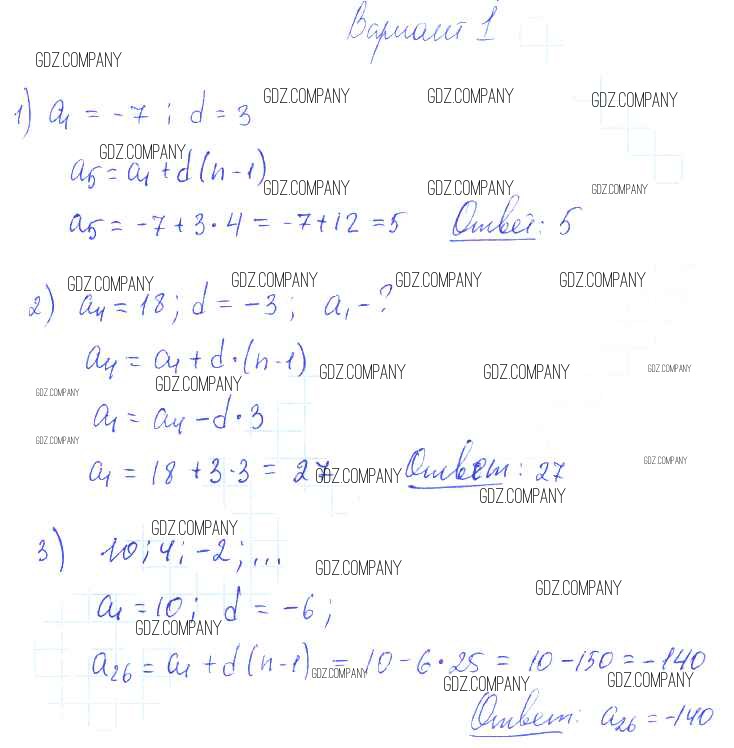 Вариант 1
GDZ.COMPANY
GDZ.COMPANY GDZ.COMPANY GDZ.COMPANY
1) a₁ = -7 ; d = 3
GDZ.COMPANY
a₅ = a₁ + d(n-1)
GDZ.COMPANY GDZ.COMPANY GDZ.COMPANY
a₅ = -7 + 3 · 4 = -7 + 12 = 5 Ответ: 5
GDZ.COMPANY GDZ.COMPANY GDZ.COMPANY GDZ.COMPANY
2) a₄ = 18 ; d = -3 ; a₁ - ?
a₄ = a₁ + d · (n-1)
GDZ.COMPANY GDZ.COMPANY GDZ.COMPANY
GDZ.COMPANY GDZ.COMPANY
a₁ = a₄ - d · 3
GDZ.COMPANY
a₁ = 18 + 3 · 3 = 27 Ответ: 27
GDZ.COMPANY GDZ.COMPANY
GDZ.COMPANY
GDZ.COMPANY
3) 10 ; 4 ; -2 ; ...
GDZ.COMPANY
GDZ.COMPANY
a₁ = 10 ; d = -6 ;
GDZ.COMPANY
a₂₆ = a₁ + d(n-1) = 10 - 6 · 25 = 10 - 150 = -140
GDZ.COMPANY GDZ.COMPANY GDZ.COMPANY
Ответ: a₂₆ = -140